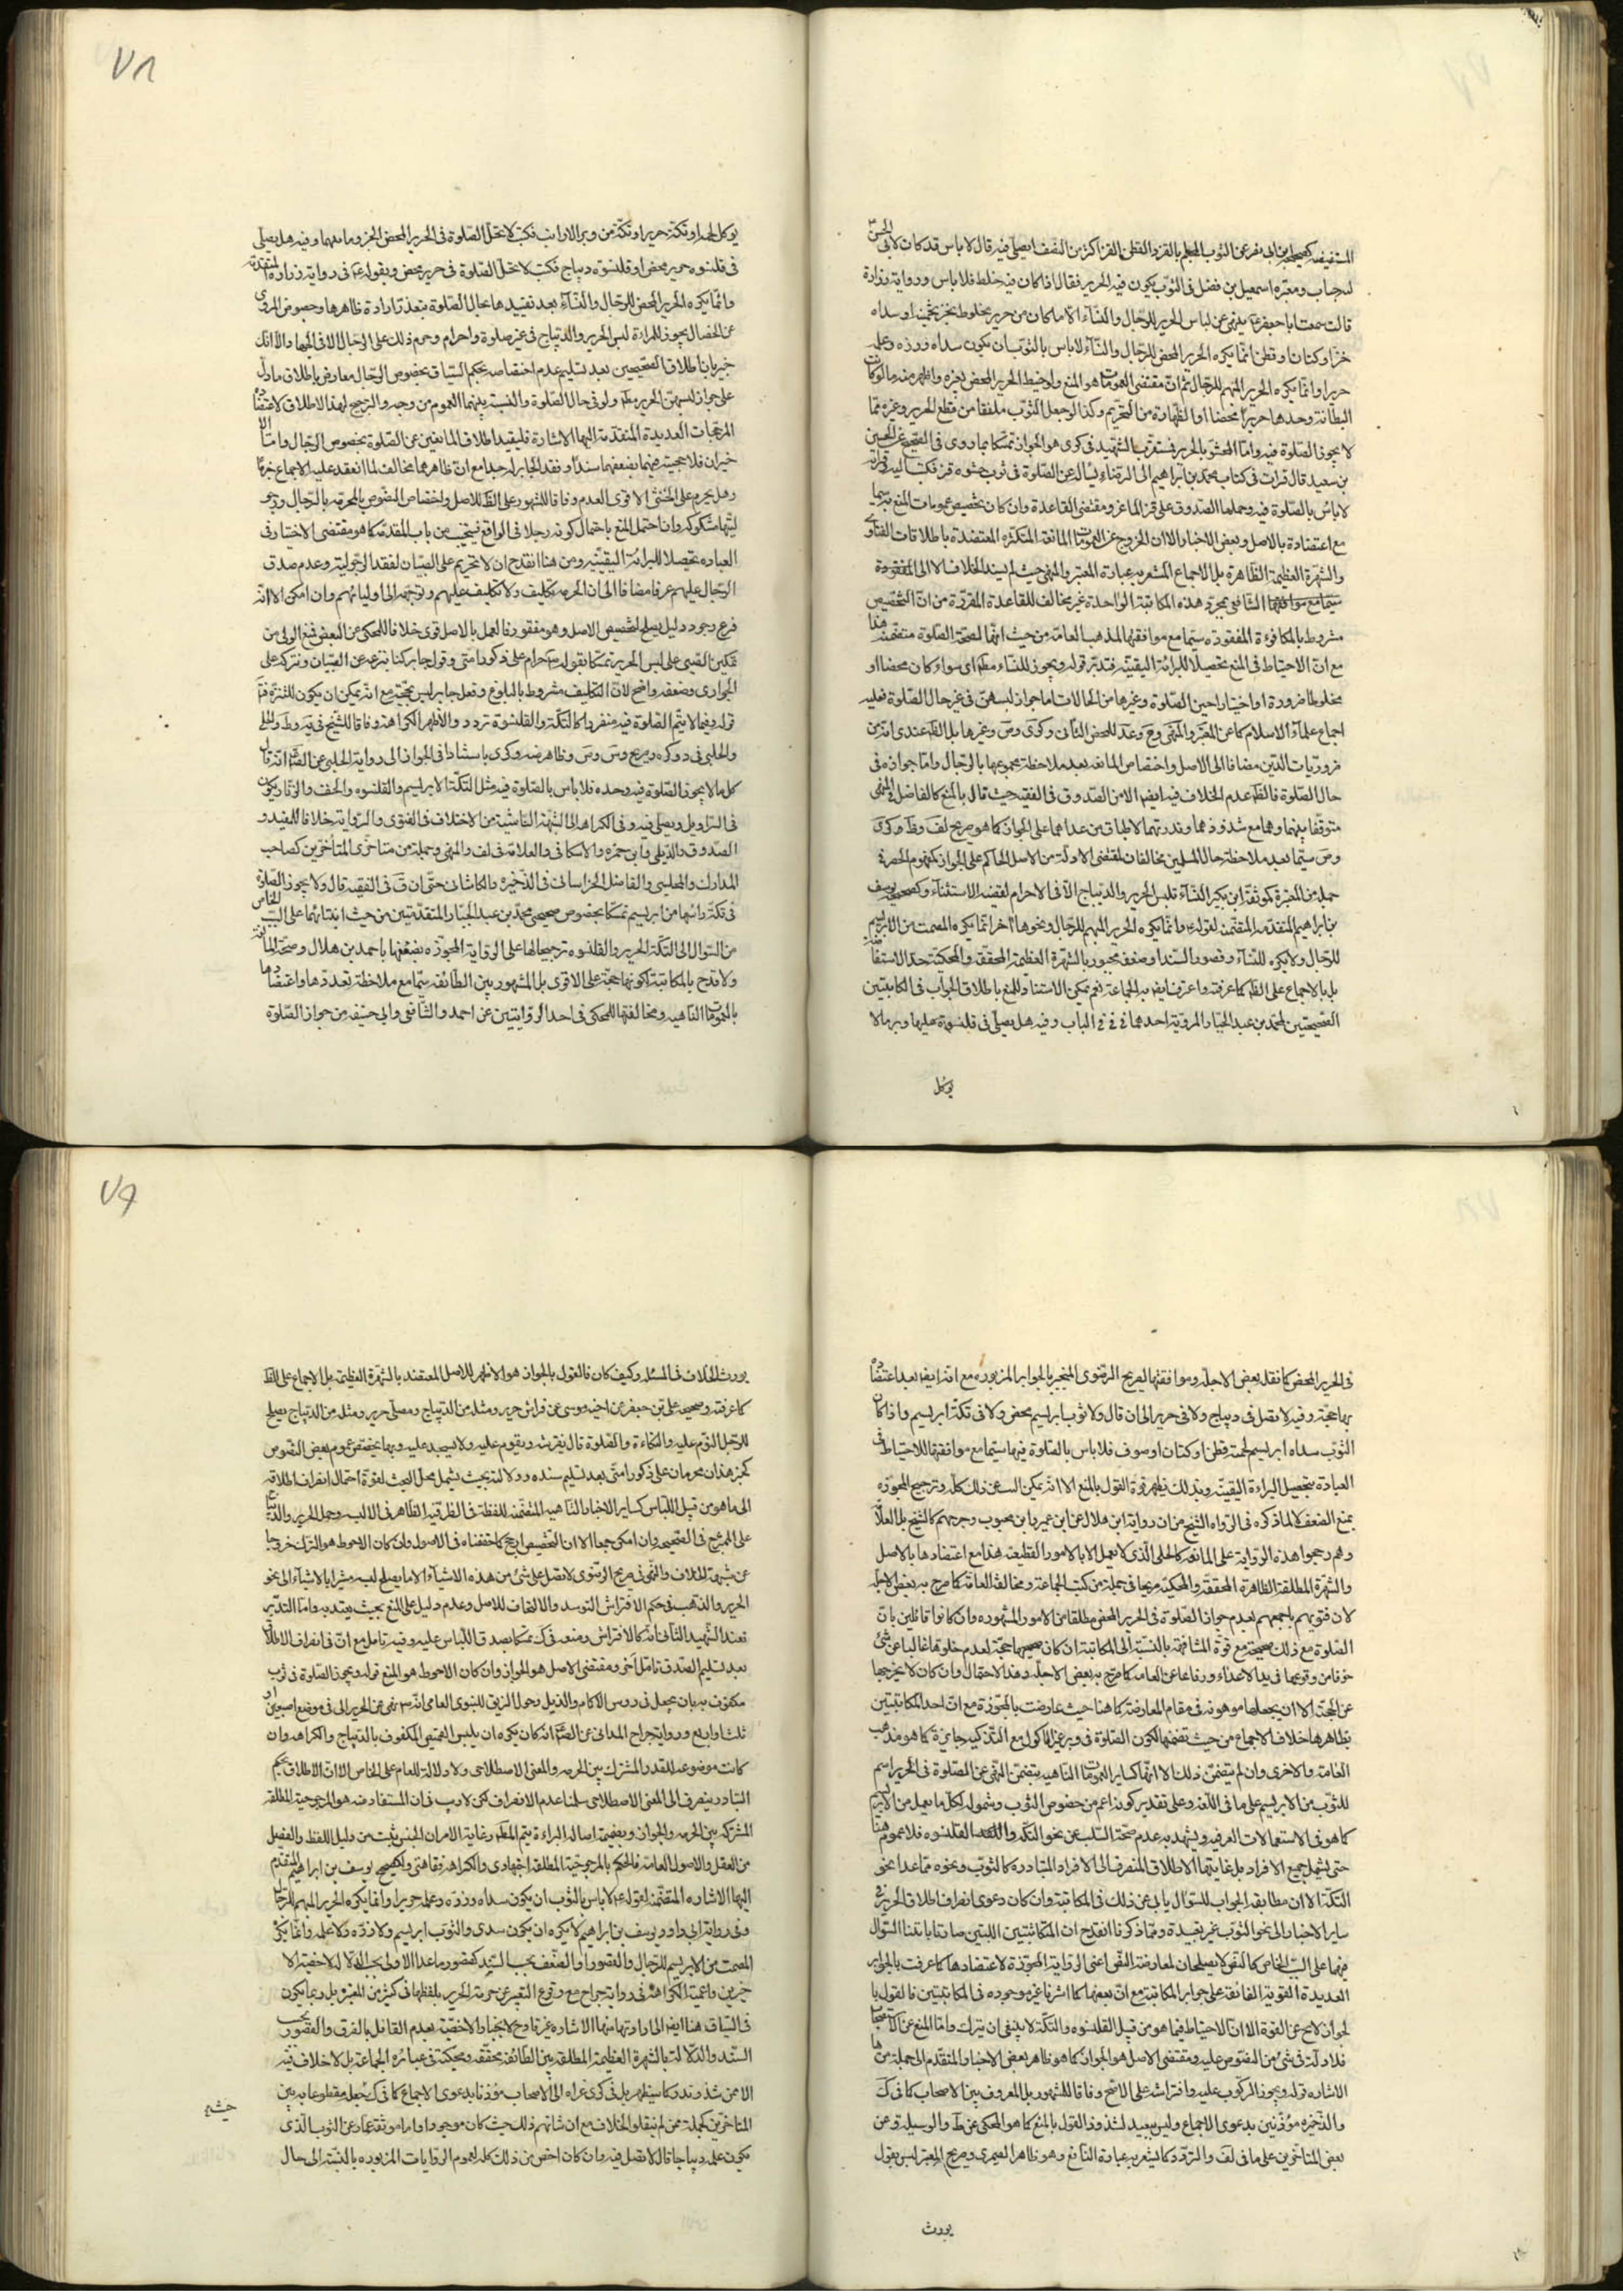 المستفيضه كصحيحة ابن ابى نصر عن الثوب الملحم بالقز والقطن القز اكثر من النصف ايصلى فيه قال لا باس قد كان لابى الحسن
لجباب ومعتبره اسمعيل بن فضل فى الثوب يكون فيه الحرير فقال اذا كان فيه خلط فلا باس ورواية زرارة
قال سمعت ابا جعفر ينهى عن لباس الحرير للرجال والنساء الا ما كان من حرير مخلوط بخز لحمته او سداه
خز او كتان او قطن انما يكره الحرير المحض للرجال والنساء لا باس بالثوب ان يكون سداه وزره وعلمه
حريرا وانما يكره الحرير المبهم للرجال ثم ان مقتضى العمومات هو المنع ولو خيط الحرير المحض بغيره واظهر منه ما لو كانت
البطانة وحدها حريرا محضا او الظهارة من التحريم وكذا لو جعل الثوب ملفقا من قطع الحرير وغيره مما
لا يجوز الصلوة فيه واما المحشو بالحرير الشهيد فى كرى هو الجواز تمسكا بما روى فى الصحيح عن الحسين
بن سعيد قال قرات فى كتاب محمد بن ابراهيم الى الرضا يسال عن الصلوة فى ثوب حشوه قز فكتب اليه قراته
لا باس بالصلوة فيه وحملها الصدوق على قز الماعز ومقتضى القاعدة وان كان تخصيص عمومات المنع
مع اعتضادة بالاصل وبعض الاخبار الا ان الخروج عن العمومات المانعة المتكثره المعتضدة باطلاقات الفتاوى
والشهرة العظيمة الظاهرة بل الاجماع المشعر به عبارة المعتبر والمنتهى حيث لم يسند الخلاف الا الى
الشافعى بمجرد هذه المكاتبة الواحدة غير مخالف للقاعدة المقررة من ان التخصيص
مشروط بالمكافوءة المفقوده سيما مع موافقتها لمذهب العامة من حيث انها لصحة الصلوة متضمنة هذا
مع ان الاحتياط فى المنع تحصيلا للبرائة اليقينية فتدبر قوله ويجوز للنساء مطلقا اى سواء كان محضا او
مخلوطا ضرورة او اختيارا حين الصلوة وغيرها من الحالات اما جواز لبسهن فى غير حال الصلوة فعليه
اجماع علماء الاسلام كما عن المعتبر والمنتهى
ضروريات الدين مضافا الى الاصل واختصاص المانعه بعد ملاحظة مجموعها بالرجال واما جوازه فى
حال الصلوة عدم الخلاف فيه ايضا الا من الصدوق فى الفقيه حيث قال بالمنع كالفاضل فى المنتهى
متوقفا بينهما وهما مع شذوذهما وندرتهما لاطباق من عداهما على الجواز كما هو صريح لف
سيما بعد ملاحظة حال المسلمين مخالفان لمقتضى الادلة من الاصل الحاكم على الجواز كمفهوم الحصر فى
جملة من المعتبرة كموثقة ابن بكير النساء تلبس الحرير والديباج الا فى الاحرام لقضيه الاستثناء وكصحيحة يوسف
بن ابراهيم المتقدمه المتضمن لقوله وانما يكره الحرير المبهم للرجال ونحوها اخر انما يكره المصمت من الابريسم
للرجال ولا يكره للنساء وقصور السند او ضعفه مجبور بالشهرة العظيمة المحققة والمحكية حد الاستفاضه
بل بالاجماع على الظاهر كما عرفته واعترف ايضا به الجماعة نعم يمكن الاستناد للمنع باطلاق الجواب فى المكاتبتين
الصحيحتين لمحمد بن عبد الجبار المروية احدهما فى الباب وفيه هل يصلى فى قلنسوة عليها وبر ما لا
يوكل
٧٨
يوكل لحمه او تكة حرير او تكة من وبر الارانب فكتب لا تحل الصلوة فى الحرير المحض وفيه هل يصلى
فى قلنسوه حرير محض او قلنسوة ديباج فكتب لا تحل الصلوة فى حرير محض وبقوله فى رواية زرارة المتقدمة
وانما يكره الحرير المحض للرجال والنساء بعد تقييدها بحال الصلوة بتعذر ارادة ظاهرها وخصوص المروى
عن الخصال يجوز للمراة لبس الحرير والديباج فى غير صلوة واحرام وحرم ذلك على الرجال الا فى الجهاد الا انك
خبير بان اطلاق الصحيحين بعد تسليم عدم اختصاصه بحكم السياق بخصوص الرجال معارض باطلاق ما دل
على جواز لبسهن الحرير مطلقا ولو فى حال الصلوة والنسبة بينهما العموم من وجه والترجيح لهذا الاطلاق لاعتضاده
المرجحات العديدة المتقدمة اليها الاشارة فليقيد اطلاق المانعين عن الصلوة بخصوص الرجال واما
خيران فلا حجية فيهما بضعفهما سندا وفقد الجابر لهما جدا مع ان ظاهرهما مخالف لما انعقد عليه الاجماع جزما
وهل يحرم على الخنثى الاقوى العدم وفاقا للمشهور على الظاهر للاصل واختصاص النصوص المحرمه بالرجال
مشكوكه وان احتمل المنع باحتمال كونه رجلا فى الواقع فيجب من باب المقدمة كما هو مقتضى الاختيار فى
العباده تحصيلا للبرائة اليقينيه ومن هنا انقدح ان لا تحريم على الصبيان لفقد الرجوليه وعدم صدق
الرجال عليهم عرفا مضافا الى ان الحرمه تكليف ولا تكليف عليهم وتوجهه الى اوليائهم وان امكن الا انه
فرع وجود دليل يصلح لتخصيص الاصل وهو مفقود فالعمل بالاصل قوى خلافا للمحكى عن البعض فمنع الولى من
تمكين الصبى على لبس الحرير تمسكا بقوله حرام على ذكور امتى وقول جابر كنا ننزعه عن الصبيان ونتركه على
الجوارى وضعفه واضح لان التكليف مشروط بالبلوغ وفعل جابر ليس بحجة مع انه يمكن ان يكون للتنزه
قوله وفيما لا يتم الصلوة فيه منفردا كالتكة والقلنسوة تردد والاظهر الكراهة وفاقا للشيخ فى
والحلبى باستنادا فى الجواز الى رواية الحلبى عن الصادق انه قال
كل ما لا يجوز الصلوة فيه وحده فلا باس بالصلوة فيه مثل التكة الابريسم والقلنسوه والخف والزنار يكون
فى السراويل ويصلى فيه وفى الكراهة الى الشبهة الناشئة من الاختلاف فى الفتوى والرواية خلافا للمفيد و
الصدوق والديلمى وابن حمزه والاسكافى والعلامة فى لف والمنتهى وجملة من متاخرى المتأخرين كصاحب
المدارك والمجلسى والفاضل الخراسانى فى الذخيره والكاشانى حتى ان ق فى الفقيه قال ولا يجوز الصلوة
فى تكة راسها من ابريسم تمسكا بخصوص صحيحى محمد بن عبد الجبار المتقدمتين من حيث ابتنائهما على السبب الخاص
من السوال الى التكة الحرير والقلنسوه ترجيحا لها على الرواية المجوزه بضعفها باحمد بن هلال وصحة المانعة
ولا قدح بالمكاتبة لكونها حجة على الاقوى بل المشهور بين الطائفه سيما مع ملاحظة تعددها واعتضادها
بالعمومات الناهيه ومخالفتها للمحكى فى احد الروايتين عن احمد والشافعى وابى حنيفه من جواز الصلوة
فى الحرير المحض كما نقله بعض الاجله وموافقتها لصريح الرضوى المنجبر بالجوابر المزبوره مع انه ايضا بعد اعتضاده
بها حجة وفيه لا تصل فى ديباج ولا فى حرير الى ان قال ولا ثوب ابريسم محض ولا فى تكة ابريسم واذا كان
الثوب سداه ابريسم لحمته قطن او كتان او صوف فلا باس بالصلوة فيها سيما مع موافقتها للاحتياط فى
العبادة بتحصيل البراءة اليقينيه وبذلك يظهر قوة القول بالمنع الا انه يمكن عن ذلك كله وترجيح المجوزه
بمنع الضعف لما ذكره فى الشيخ من ان رواية ابن هلال عن ابن عمير وابن محبوب وجرحهم كالشيخ بل العلامة
وهم رجحوا هذه الرواية على المانعه كالحلى الذى لا يعمل الا بالامور القطيعه هذا مع اعتضادها بالاصل
والشهرة المطلقة الظاهرة المحققة والمحكية صريحا فى جملة من كتب الجماعة ومخالفة العامة كما صرح به بعض الاجلة
لان فتويهم باجمعهم بعدم جواز الصلوة فى الحرير المحض مطلقا من الامور المشهوره وان كانوا قائلين بان
الصلوة مع ذلك صحيحة مع قوة المشافهة بالنسبة الى المكاتبة ان كان حجة لعدم خلوها غالبا عن شئ
خوفا من وقوعها فى يد الاعداء ورفاعا عن العامه كما صرح به بعض الاجله وهذا الاحتمال وان كان لا يخرجها
عن الحجة الا ان يجعلها موهونه فى مقام المعارضة كما هنا حيث عارضت بالمجوزة مع ان احد المكاتبتين
بظاهرها خلاف الاجماع من حيث تضمنها لكون الصلوة فى وبر غير الماكول مع التذكيه جايزة كما هو مذهب
العامة والاخرى وان لم يتضمن ذلك الا انها كساير العمومات الناهيه يتضمن النهى عن الصلوة فى الحرير اسم
للثوب من الابريسم على ما فى اللغة وعلى تقدير كونه اعم من خصوص الثوب وشموله لكل ما يعمل من الابريسم
كما هو فى الاستعمالات العرفيه ويشهد به عدم صحة السلب عن نحو التكة والقلنسوه فلا عموم هنا
حتى يشمل جميع الافراد بل غايتها الاطلاق المنصرف الى الافراد المتبادره كالثوب ونحوه مما عدا نحو
التكة الا ان مطابقه الجواب للسؤال يابى عن ذلك فى المكاتبة وان كان دعوى انصراف اطلاق الحرير فى
ساير الاخبار الى نحو الثوب غير بعيدة ومما ذكرنا انقدح ان المكاتبتين اللتين صارتا بابتناء السؤال
فيهما على السبب الخاص كالنص لا يصلحان لمعارضة النص اعنى الرواية المجوزة لاعتضادها كما عرفت بالجوابر
العديدة القوية الفائقة على جوابر المكاتبة مع ان بعضها كما اشرنا غير موجوده فى المكاتبتين فالقول با
لجواز لا يخ عن القوة الا ان الاحتياط فيما هو من قبيل القلنسوه والتكة لا ينبغى ان يترك واما المنع عن الاستصحاب
فلا دلالة فى شئ من النصوص عليه ومقتضى الاصل هو الجواز كما هو ظاهر بعض الاخبار المتقدم الى جملة منها
الاشاره قوله ويجوز الركوب عليه وافتراشه على الاصح وفاقا للمشهور بل المعروف بين الاصحاب كما فى ك
والذخيره مؤذنين بدعوى الاجماع وليس ببعيد لشذوذ القول بالمنع كما هو المحكى عن ط والوسيله وعن
بعض المتاخرين على ما فى لف والتردد كما يشعر به عبارة النافع وهو ظاهر الصيمرى وصريح المعتبر ليس بقول
يورث
٧٩
يورث الخلاف فى المسئله وكيف كان فالقول بالجواز هو الاظهر للاصل المعتضد بالشهرة العظيمه بل الاجماع على الظاهر
كما عرفته وصحيحه على بن جعفر عن اخيه موسى عن فراش حرير ومثله من الديباج ومصلى حرير ومثله من الديباج يصلح
للرجل النوم عليه والتكاءة والصلوة قال يفرشه ويقوم عليه ولا يسجد عليه وبها يخصص عموم بعض النصوص
كخبر هذان محرمان على ذكور امتى بعد تسليم سنده ودلالته بحيث يشمل محل البحث لقوة احتمال انصراف اطلاقه
الى ما هو من قبيل اللباس كساير الاخبار الناهيه المتضمنه للفظة فى الظرفيه الظاهره فى اللبس وحمل الحرير والديباج
على الممزج فى الصحيحه وان امكن جمعا الا ان التخصيص ارجح كما حققناه فى الاصول وان كان الاحوط هو الترك خروجا
عن شبهة الخلاف والنهى فى صريح الرضوى لا تصل على شئ من هذه الاشياء الا ما يصلح لبسه مشيرا بالاشياء الى نحو
الحرير والذهب فى حكم الافتراش التوسد والالتحاف للاصل وعدم دليل على المنع بحيث يعتد به واما التدثر
فعند الشهيد الثانى انه كالافتراش ومنعه فى ك تمسكا بصدق اللباس عليه وفيه تامل مع ان فى انصراف الاطلاق
بعد تسليم الصدق تامل اخر ومقتضى الاصل هو الجواز وان كان الاحوط هو المنع قوله ويجوز الصلوة فى ثوب
مكفوف به بان يجعل فى رؤس الاكمام والذيل وحول الزيق للنبوى العامى انه نهى عن الحرير الا فى موضع اصبعين او
ثلث او اربع ورواية جراح المدائنى عن الصادق انه كان يكره ان يلبس القميص المكفوف بالديباج والكراهه وان
كانت موضوعه للقدر المشترك بين الحرمه والمعنى الاصطلاحى ولا دلالة للعام على الخاص الا ان الاطلاق بحكم
التبادر ينصرف الى المعنى الاصطلاحى سلمنا عدم الانصراف لكن لا ريب فى ان المستفاد منه هو المرجوحية المطلقه
المشتركه بين الحرمه والجواز وبضميمة اصالة البراءة يتم المطلوب وغاية الامر ان الجنس ثبت من دليل اللفظ والفصل
من العقل والاصول العامة فالحكم بالمرجوحية المطلقه اجتهادى والكراهة فقاهتى ولصحيح يوسف بن ابراهيم المتقدم
اليها الاشاره المتضمنه لقوله لا باس بالثوب ان يكون سداه وزره وعلمه حريرا وانما يكره الحرير المبهم للرجال
وفى رواية ابى داود يوسف بن ابراهيم لا يكره ان يكون سدى الثوب ابريسم ولا زره ولا علمه وانما يكره
المصمت من الابريسم للرجال والقصور او الضعف بحسب السند كقصور ما عدا الاولى بحسب الدلاله لاخصية الا
خيرين واعمية الكراهة فى رواية جراح مع وقوع التعبير عن حرمة الحرير بلفظها فى كثير من المعتبره بل ربما يكون
فى السياق هنا ايضا الى ارادتها منها الاشاره غير قادح لانجبار الاخصية بعدم القائل بالفرق والقصور بحسب
السند والدلالة بالشهرة العظيمة المطلقه بين الطائفه محققه ومحكية فى عبائر الجماعة بل لا خلاف فيه
الا ممن شذ وندر كما سيظهر بل فى كرى عزاه الى الاصحاب مؤذنا بدعوى الاجماع كما فى ك بجعله مقطوعا به بين
المتاخرين كجملة ممن لم ينقلوا الخلاف مع ان شانهم ذلك حيث كان موجودا واما موثقة عمار عن الثوب الذى
يكون علمه ديباجا قال لا تصل فيه وان كان اخص من ذلك كله لعموم الروايات المزبوره بالنسبة الى حال